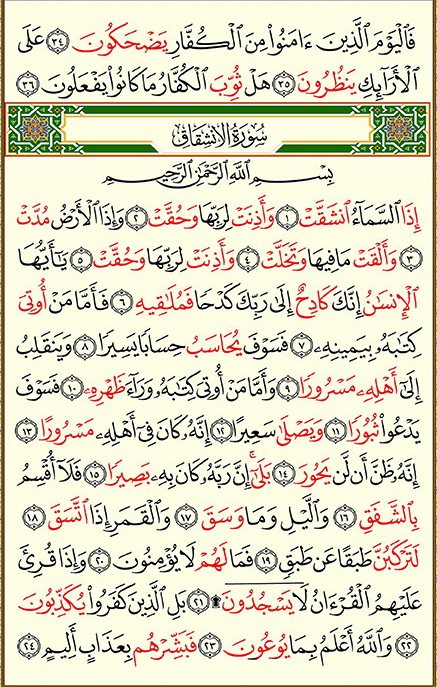 فَٱلْيَوْمَ ٱلَّذِينَ ءَامَنُوا۟ مِنَ ٱلْكُفَّارِ يَضْحَكُونَ ٣٤ عَلَى
ٱلْأَرَآئِكِ يَنظُرُونَ ٣٥ هَلْ ثُوِّبَ ٱلْكُفَّارُ مَا كَانُوا۟ يَفْعَلُونَ ٣٦
سُورَةُ الانْشِقَاق
بِسْمِ ٱللَّهِ ٱلرَّحْمَٰنِ ٱلرَّحِيمِ
إِذَا ٱلسَّمَآءُ ٱنشَقَّتْ ١ وَأَذِنَتْ لِرَبِّهَا وَحُقَّتْ ٢ وَإِذَا ٱلْأَرْضُ مُدَّتْ
٣ وَأَلْقَتْ مَا فِيهَا وَتَخَلَّتْ ٤ وَأَذِنَتْ لِرَبِّهَا وَحُقَّتْ ٥ يَٰٓأَيُّهَا
ٱلْإِنسَٰنُ إِنَّكَ كَادِحٌ إِلَىٰ رَبِّكَ كَدْحًا فَمُلَٰقِيهِ ٦ فَأَمَّا مَنْ أُوتِىَ
كِتَٰبَهُۥ بِيَمِينِهِۦ ٧ فَسَوْفَ يُحَاسَبُ حِسَابًا يَسِيرًا ٨ وَيَنقَلِبُ
إِلَىٰٓ أَهْلِهِۦ مَسْرُورًا ٩ وَأَمَّا مَنْ أُوتِىَ كِتَٰبَهُۥ وَرَآءَ ظَهْرِهِۦ ١٠ فَسَوْفَ
يَدْعُوا۟ ثُبُورًا ١١ وَيَصْلَىٰ سَعِيرًا ١٢ إِنَّهُۥ كَانَ فِىٓ أَهْلِهِۦ مَسْرُورًا ١٣
إِنَّهُۥ ظَنَّ أَن لَّن يَحُورَ ١٤ بَلَىٰٓ إِنَّ رَبَّهُۥ كَانَ بِهِۦ بَصِيرًا ١٥ فَلَآ أُقْسِمُ
بِٱلشَّفَقِ ١٦ وَٱلَّيْلِ وَمَا وَسَقَ ١٧ وَٱلْقَمَرِ إِذَا ٱتَّسَقَ ١٨
لَتَرْكَبُنَّ طَبَقًا عَن طَبَقٍ ١٩ فَمَا لَهُمْ لَا يُؤْمِنُونَ ٢٠ وَإِذَا قُرِئَ
عَلَيْهِمُ ٱلْقُرْءَانُ لَا يَسْجُدُونَ ۩ ٢١ بَلِ ٱلَّذِينَ كَفَرُوا۟ يُكَذِّبُونَ
٢٢ وَٱللَّهُ أَعْلَمُ بِمَا يُوعُونَ ٢٣ فَبَشِّرْهُم بِعَذَابٍ أَلِيمٍ ٢٤